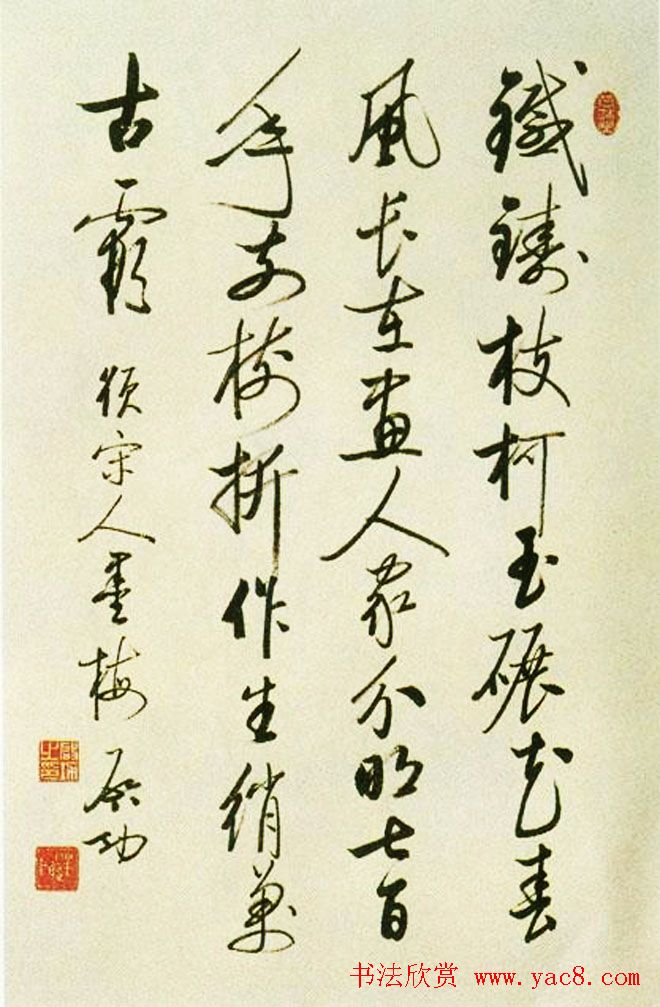 鐵鑄枝柯玉碾花春
風長在畫人家分明七百
年前樹折作生綃萬
古霞 題宋人墨梅 啓功
书法欣赏 www.yac8.com